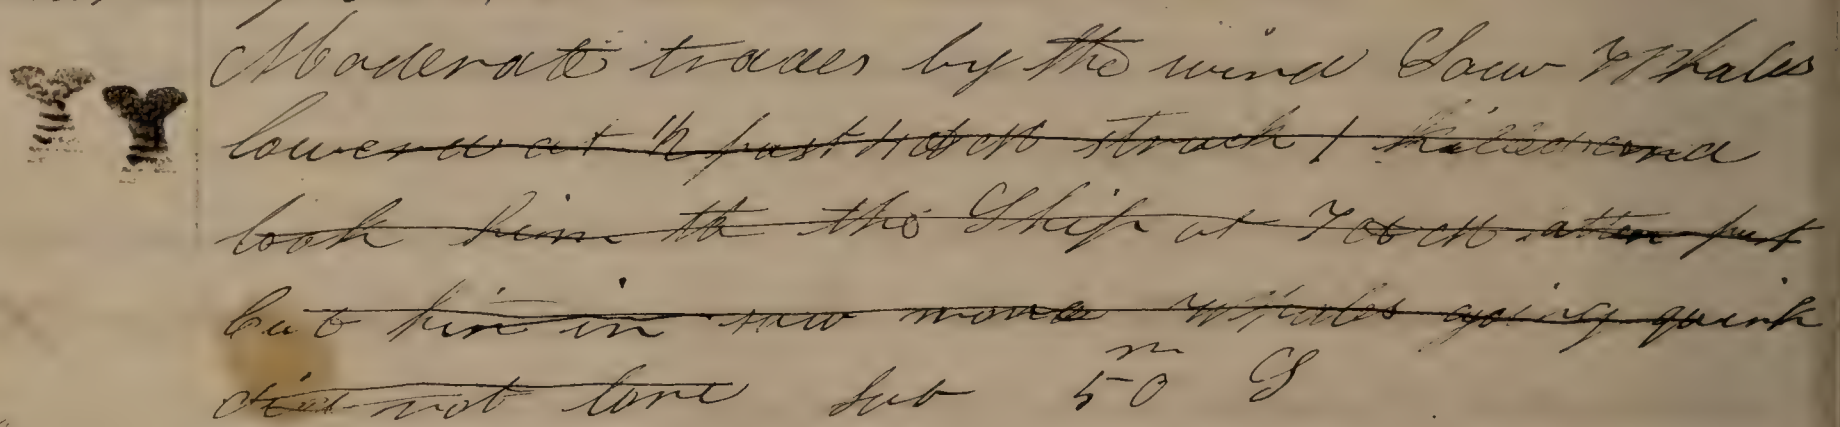 Moderate trades by the wind Saw Whales
lowered at ½ past 4 oclock struck 1 killed and
took him to the Ship at 7 oclock atten past
Cut him in saw more Whales going quick
did not lore Lat 50 m S